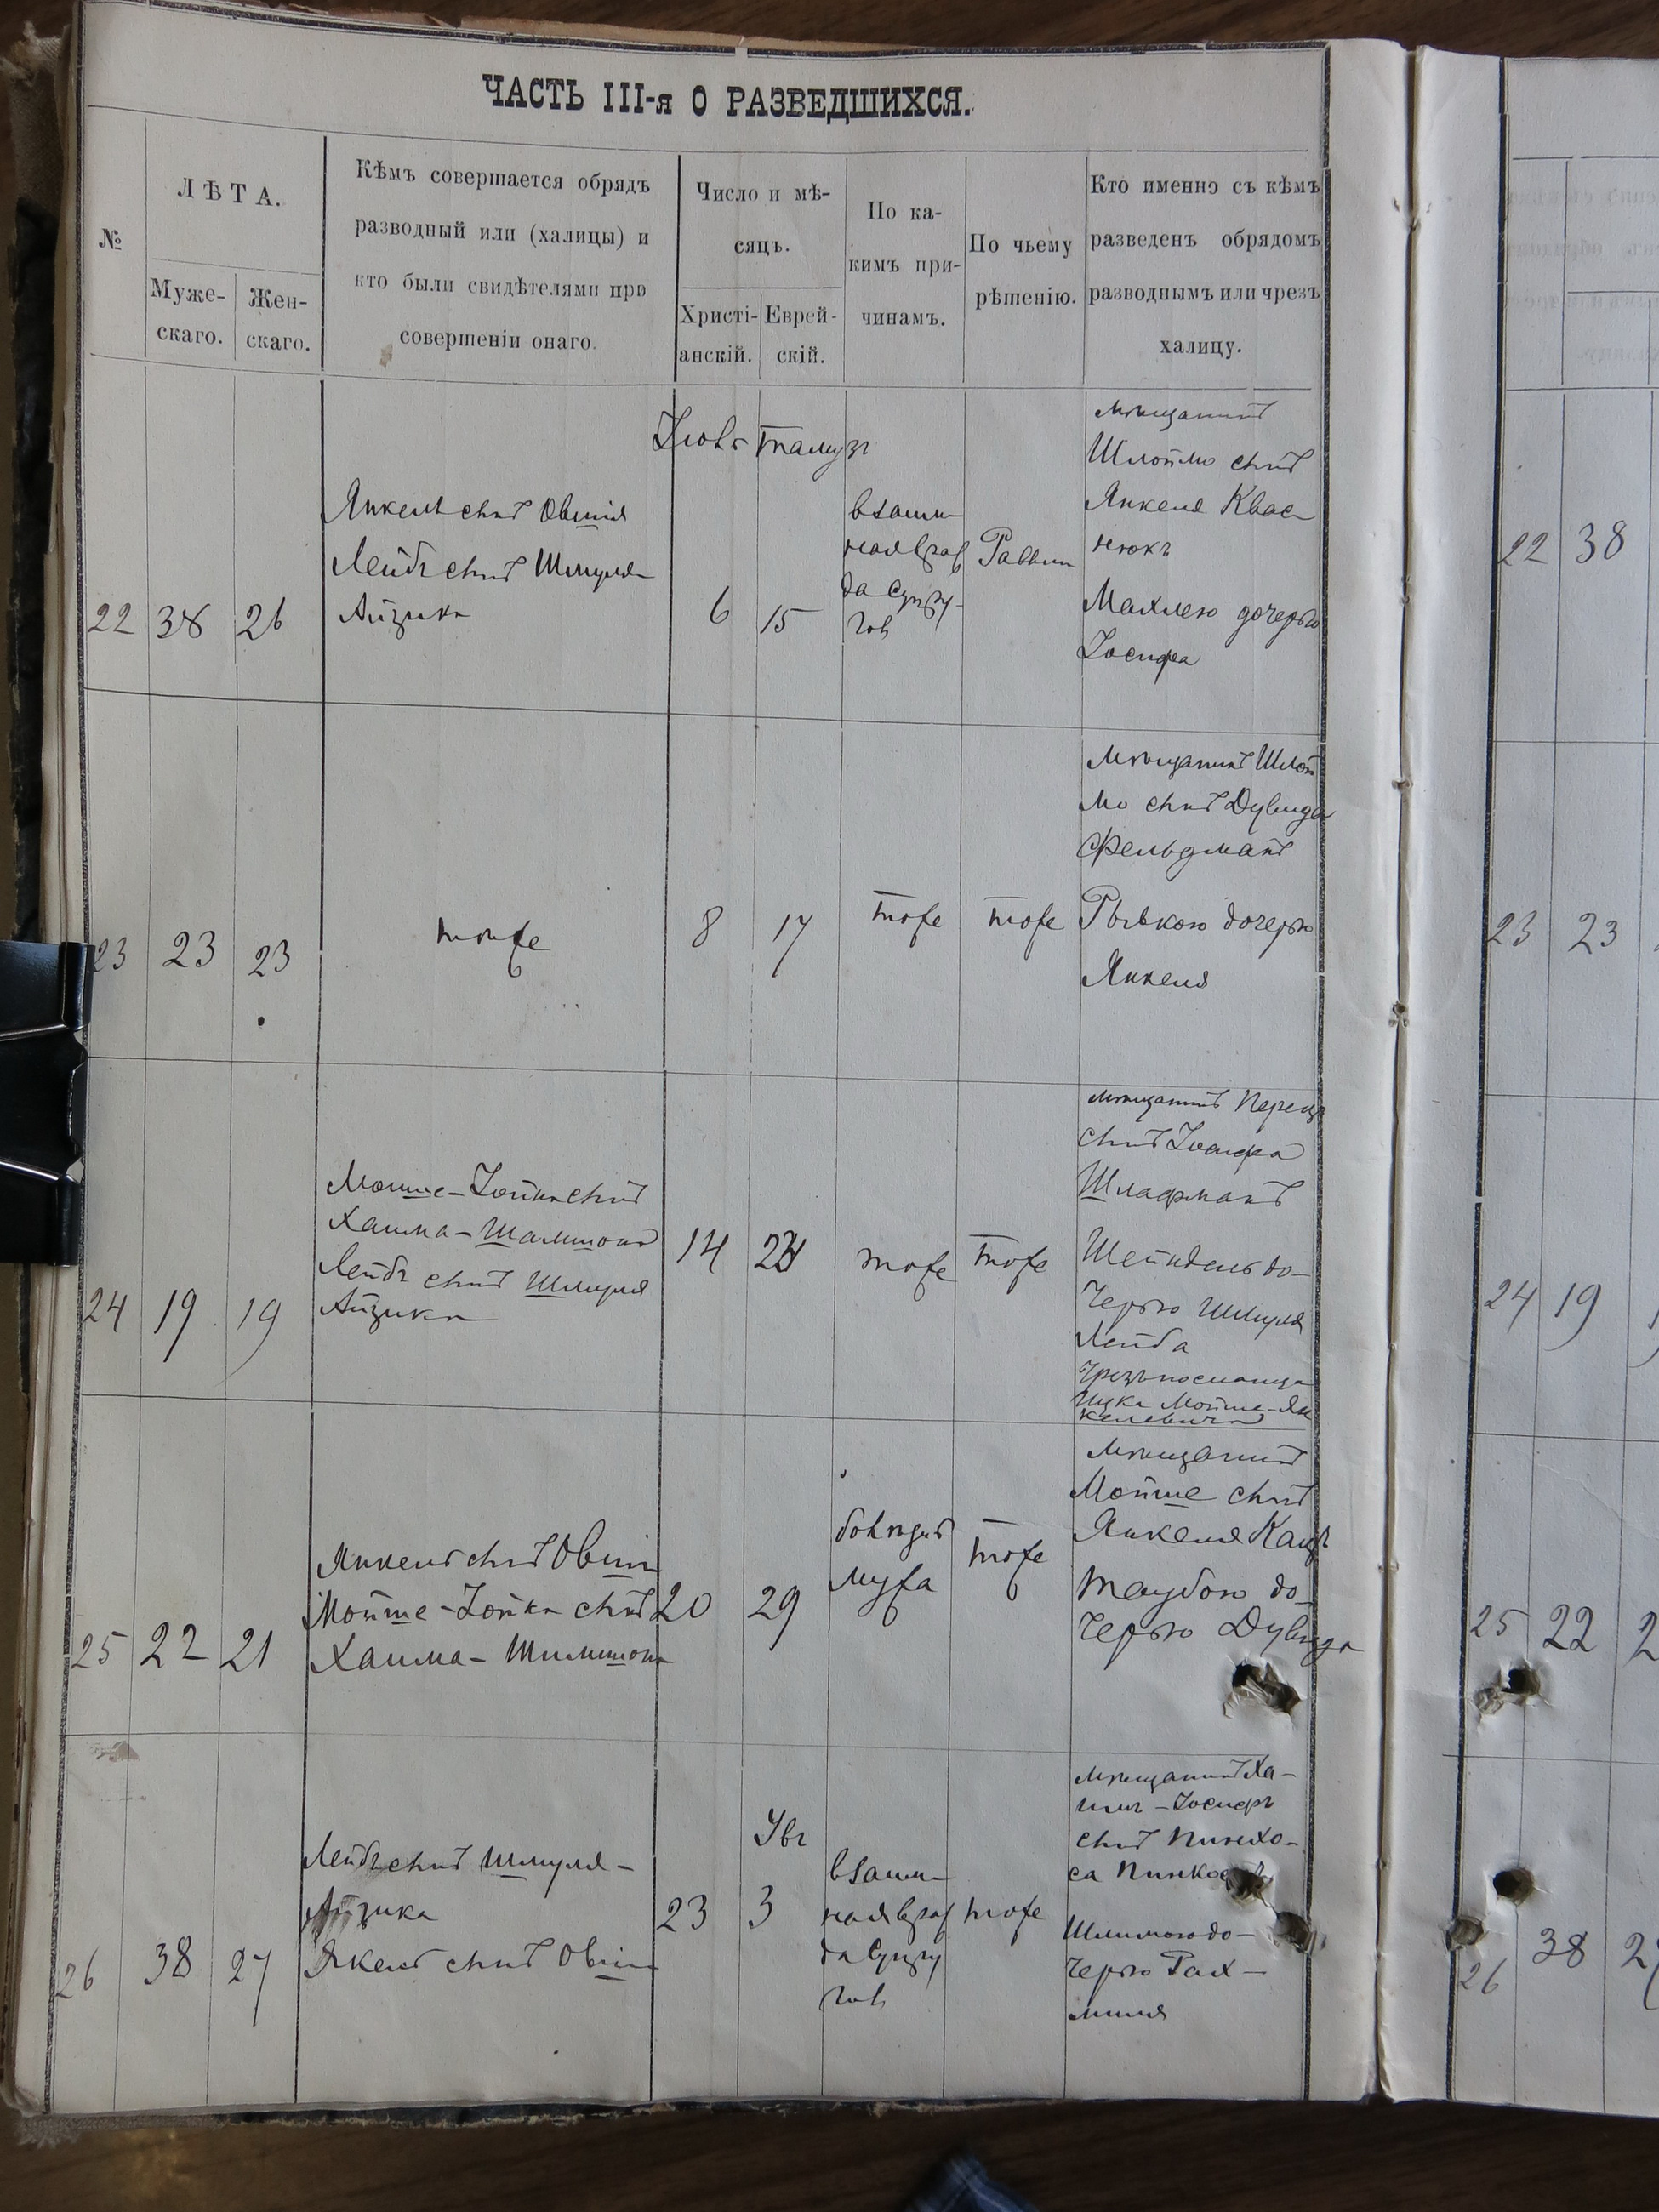 ЧАСТЬ III-я О РАЗВЕДШИХСЯ.
№
ЛѢТА.
Муже-
скаго.
Жен-
скаго.
Кѣмъ совершается обрядъ
разводный или (халицы) и
кто были свидѣтелями при
совершеніи онаго.
Число и мѣ-
сяцъ.
Христі-
анскій.
Еврей-
скій.
По ка-
кимъ при-
чинамъ.
По чьему
рѣшенію.
Кто именно съ кѣмъ
разведенъ обрядомъ
разводнымъ или чрезъ
халицу.
22
38
26
Янкель сынъ Овшія
Лейбъ сынъ Шмуля-
Айзика
Іюль
6
Тамузъ
15
взаим-
ная враж
да супру-
гов
Раввин
мѣщанинъ
Шлоймо сынъ
ЯнкеляКвас-
нюкъ
Махлею дочерью
Іосифа
23
23
23
тоже
8
17
тоже
тоже
мѣщанинъ Шлой
мо сынъ Дувида
Фельдманъ
Рывкою дочерью
Янкеля
24
19
19
Мойше-Зойка сынъ
Хаима-Шамшона
Лейбъ сынъ Шмуля
Айзика
14
23
тоже
тоже
мѣщанинъ Перецъ
сынъ Іосифа
Шлафманъ
Шейндель до-
черью Шмуля
Лейба
Чрезъ посланца
Ицка Мойше-Ян
келевича
25
22
21
Янкель сынъ Овшія
Мойше-Зойка сынъ
Хаима-Шимшона
20
29
мужа
тоже
мѣщанинъ
Мойше сынъ
Янкеля Кацъ
Таубою до-
черью Дувида
26
38
27
Лейбъ сынъ Шмуля-
Айзика
Янкель сынъ Овшія
23
Увъ
3
взаим-
ная враж
да супру
гов
тоже
мѣщанинъ Ха-
имъ-Іосифъ
сынъ Пинхо-
са
Шлимою до-
черью Рах-
миля
22 38
23 23
24 19
25 22 2
26 38 2